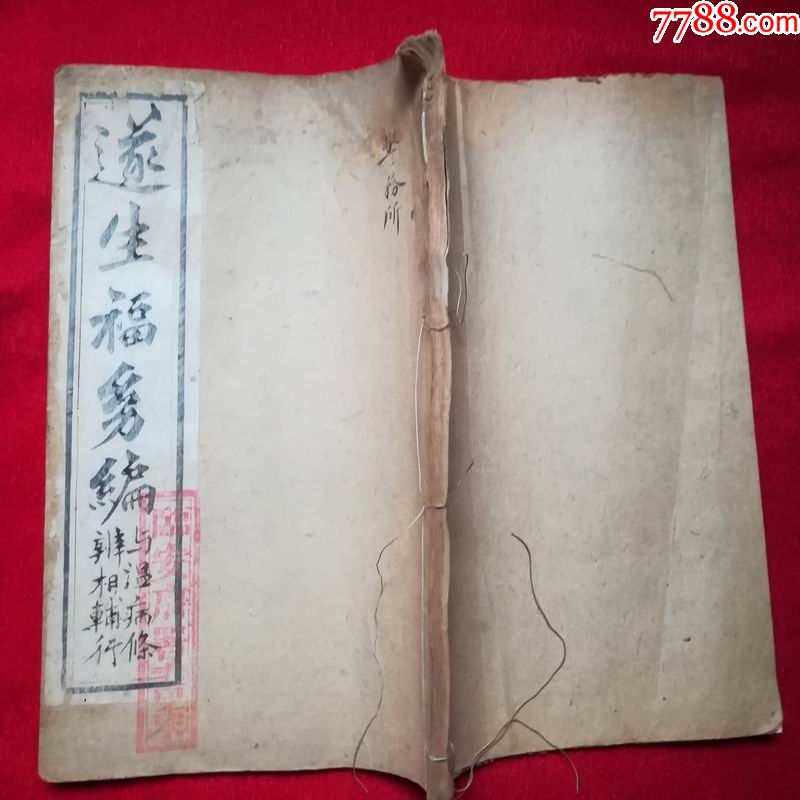 7788.com
遂生福幼編
与温病條
辨相輔行
西安府署
務所